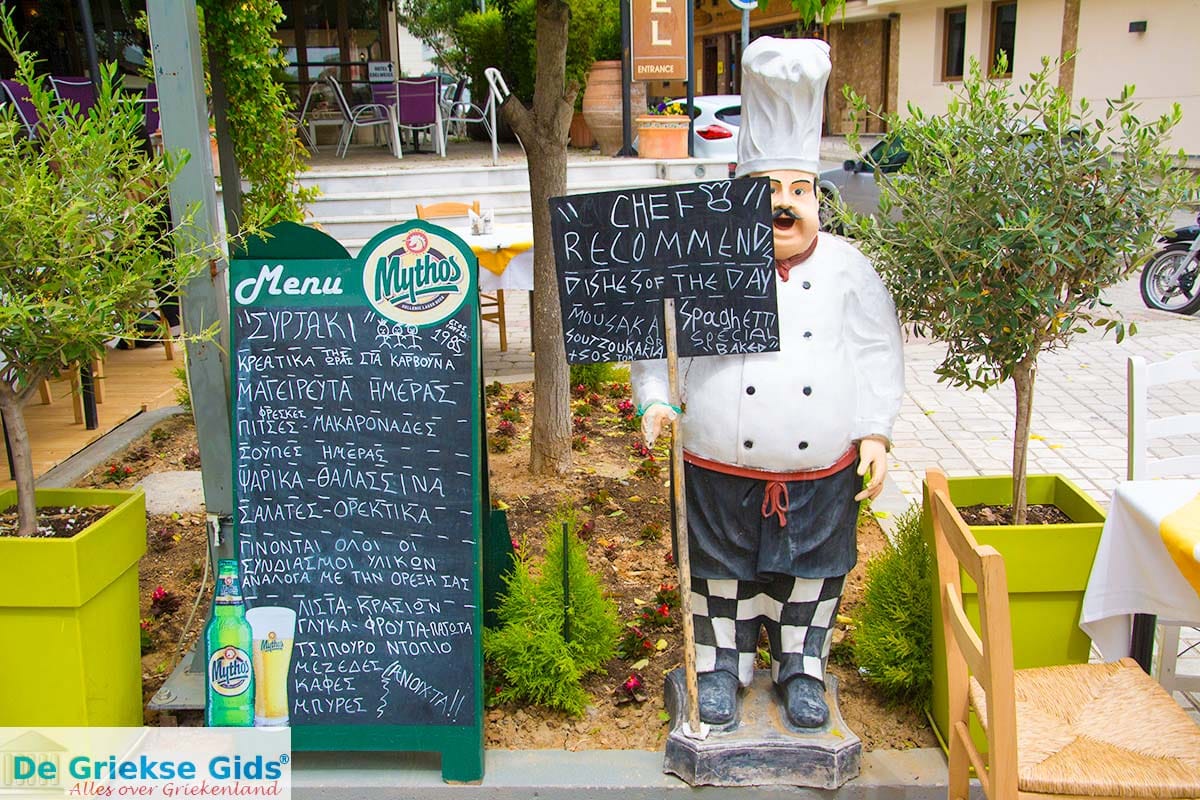 HOTEL EDELWEISS
EL
ENTRANCE
Menu
Mythos
HELLENIC LAGER BEER
"ΣΥΡΤΑΚΙ"
1985
ΚΡΕΑΤΙΚΑ ΤΗΣ ΩΡΑΣ ΣΤΑ ΚΑΡΒΟΥΝΑ
ΜΑΓΕΙΡΕΥΤΑ ΗΜΕΡΑΣ
ΦΡΕΣΚΕΣ
ΠΙΤΣΕΣ-ΜΑΚΑΡΟΝΑΔΕΣ
ΣΟΥΠΕΣ ΗΜΕΡΑΣ
ΨΑΡΙΚΑ-ΘΑΛΑΣΣΙΝΑ
ΣΑΛΑΤΕΣ-ΟΡΕΚΤΙΚΑ
ΓΙΝΟΝΤΑΙ ΟΛΟΙ ΟΙ
ΣΥΝΔΙΑΣΜΟΙ ΥΛΙΚΩΝ
ΑΝΑΛΟΓΑ ΜΕ ΤΗΝ ΟΡΕΞΗ ΣΑΣ
ΛΙΣΤΑ-ΚΡΑΣΙΩΝ
ΓΛΥΚΑ-ΦΡΟΥΤΑ-ΠΑΓΩΤΑ
ΤΣΙΠΟΥΡΟ ΝΤΟΠΙΟ
ΜΕΖΕΔΕΣ
ΚΑΦΕΣ
ΜΠΥΡΕΣ
ΑΝΟΙΧΤΑ!!
Mythos
Mythos
"CHEF"
RECOMMEND
DISHES OF THE DAY
MOUSAKA
SOUTZOUKAKIA
SPAGHETTI
SPECIAL
BAKED
De Griekse Gids®
Alles over Griekenland